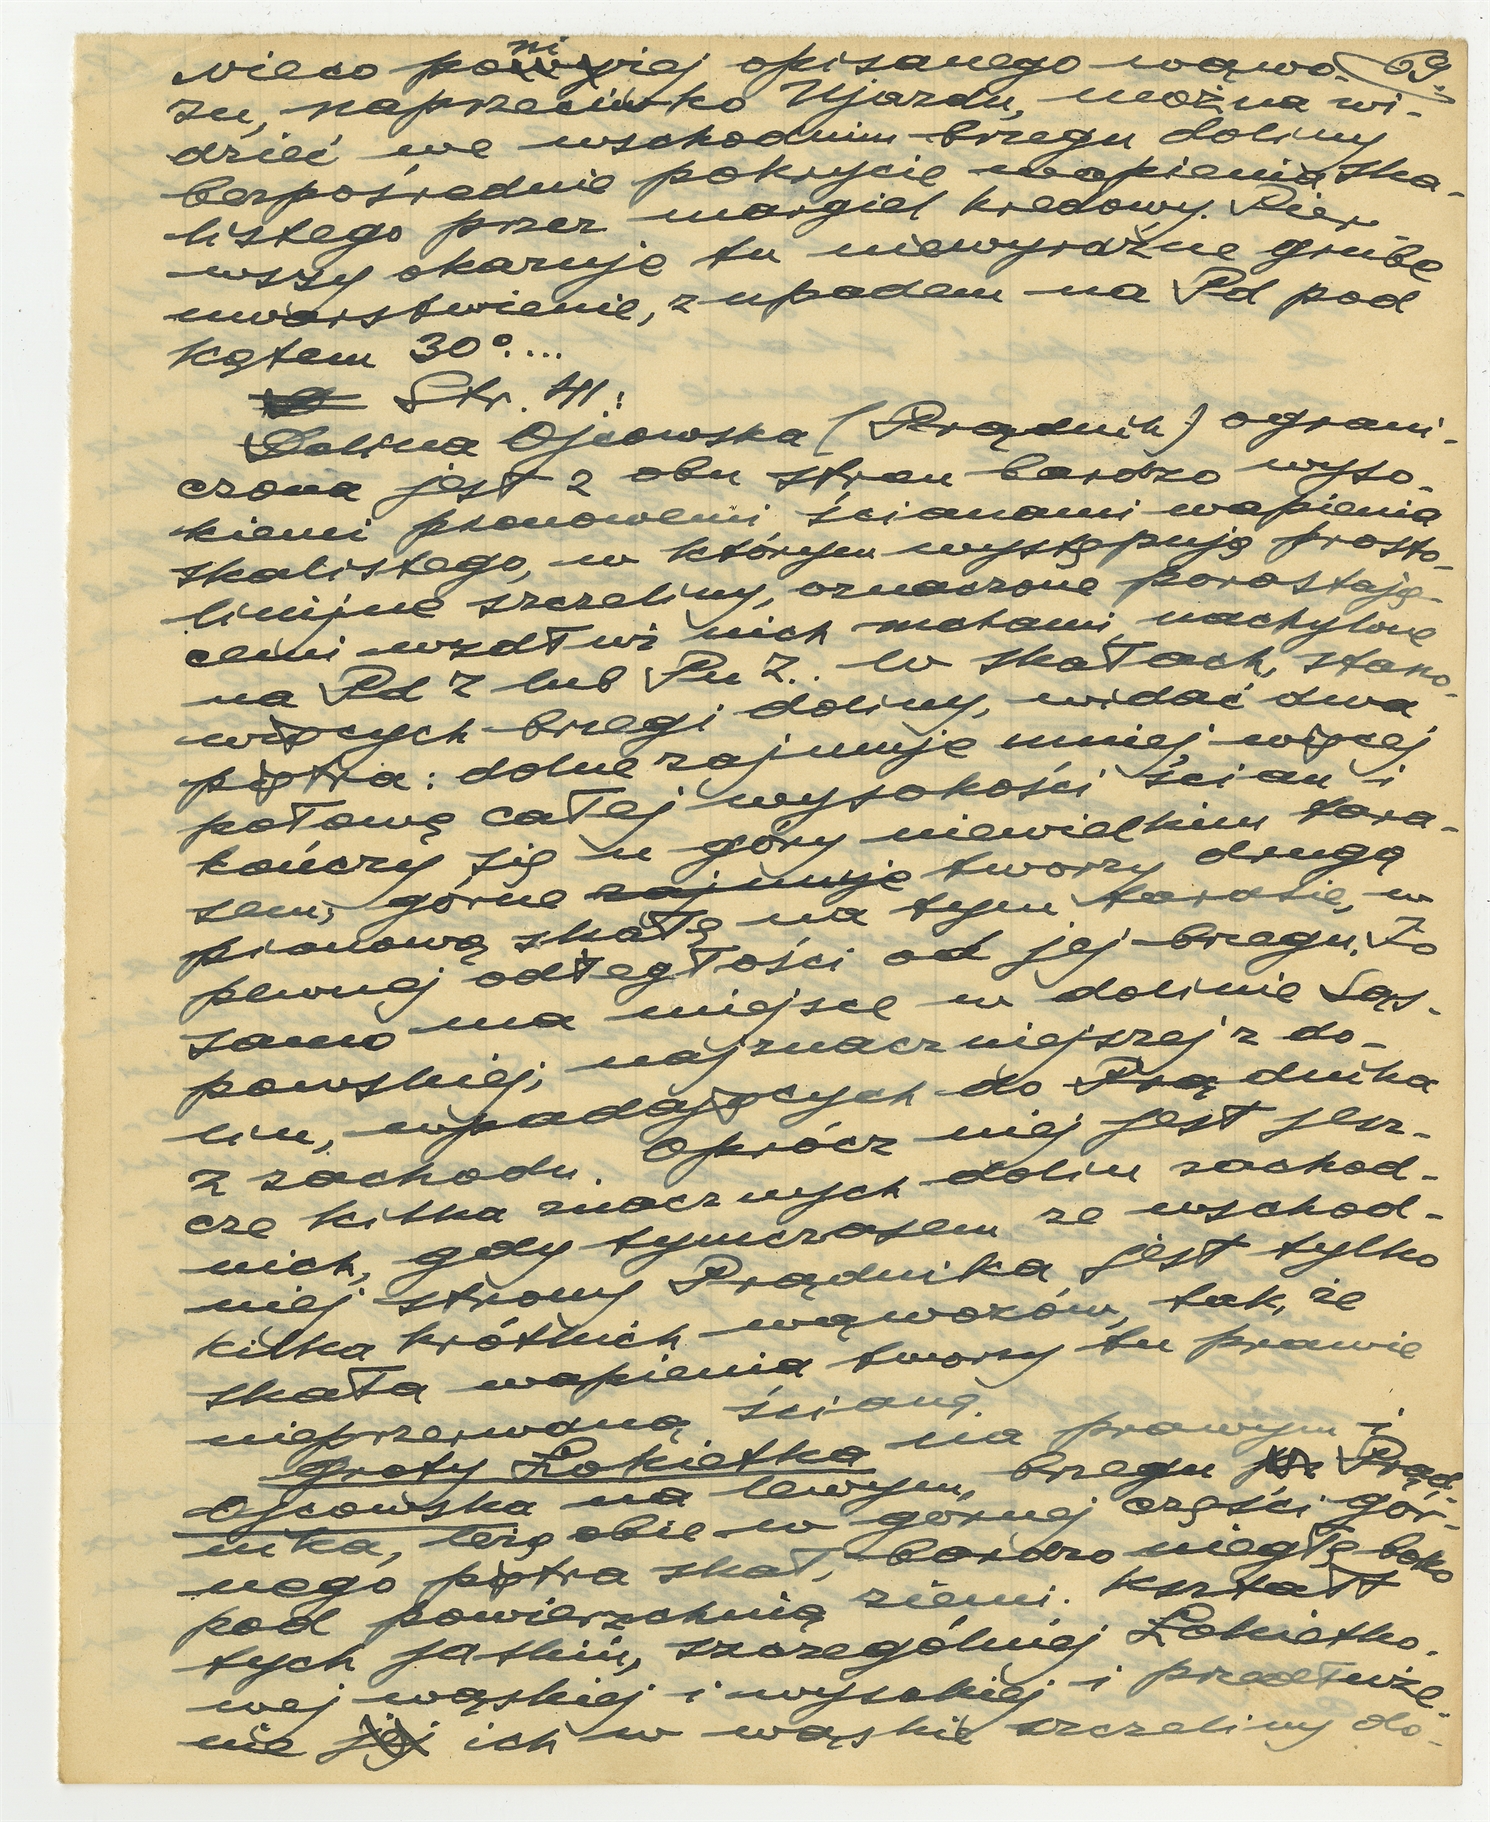 nieco poniżej opisanego wąwo- 69.
zu, naprzeciwko Ujazdu, można wi-
dzieć we wschodnim brzegu doliny
bezpośrednie pokrycie wapienia ska-
listego przez margiel kredowy. Pier-
wszy okazuje tu niewyraźne grube
uwarstwienie, z upadem na Pd pod
kątem 30°....
Str. 41:
Dolina Ojcowska (Prądnik) ograni-
czona jest z obu stron bardzo wyso-
kiemi pionowemi ścianami wapienia
skalistego, w którym występują prosto-
linijne szczeliny, oznaczone porastają-
cemi wzdłuż nich mchami, nachylone
na Pd Z lub Pn Z.. W skałach, stano-
wiących brzegi doliny, widać dwa
piętra: dolne zajmuje mniej więcej
połowę całej wysokości ścian i
kończy się u góry niewielkim tara-
sem, górne zajmuje tworzy drugą
pionową skałę na tym tarasie, w
pewnej odległości od jej brzegu. To
samo ma miejsce w dolinie Sąs-
powskiej, najznaczniejszej z do-
lin, wpadających do Prądnika
z zachodu. Oprócz niej jest jesz-
cze kilka znacznych dolin zachod-
nich, gdy tymczasem ze wschod-
niej strony Prądnika jest tylko
kilka krótkich wąwozów, tak, że
skała wapienia tworzy tu prawie
nieprzerwaną ścianę.
Groty Łokietka na prawym i
Ojcowska na lewym, brzegu Prąd-
nika, leżą obie w górnej części gór-
nego piętra skał, bardzo niegłęboko
pod powierzchnią ziemi. Kształt
tych jaskiń, szczególniej Łokietko-
wej wąskiej i wysokiej i przedłuże-
nie jej ich w wąskie szczeliny do-